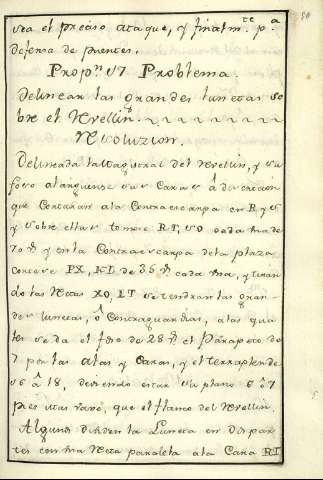 sea el preciso ataque, y finalm.te p.a
defensa de puentes.
Prop.n 17 Problema.
Delinear las grandes lunetas so
bre el Revellin.
Resoluzion.
Delineada la Magistral del Revellin, y su
foso alarguense sus Caras à discrecion
que Cortaran ala Contraescarpa en R y S
y sobre ellas tomese RI, SO cada una de
70 y en la Contraescarpa dela plaza
cortese PX, KL de 35 cada una, y tiran
do las Rectas XO, LI se tendran las gran
des lunetas, ô Contraguardias, alas qua
les se da el foso de 28 el Parapeto de
7 por las alas y Caras, y el terraplen de
16 â 18, deviendo estar su plano 6 ô 7
pies mas vaxo, que el plano del Revellin
Algunos dividen la Luneta en dos par
tes con una Recta paralela ala Cara RI